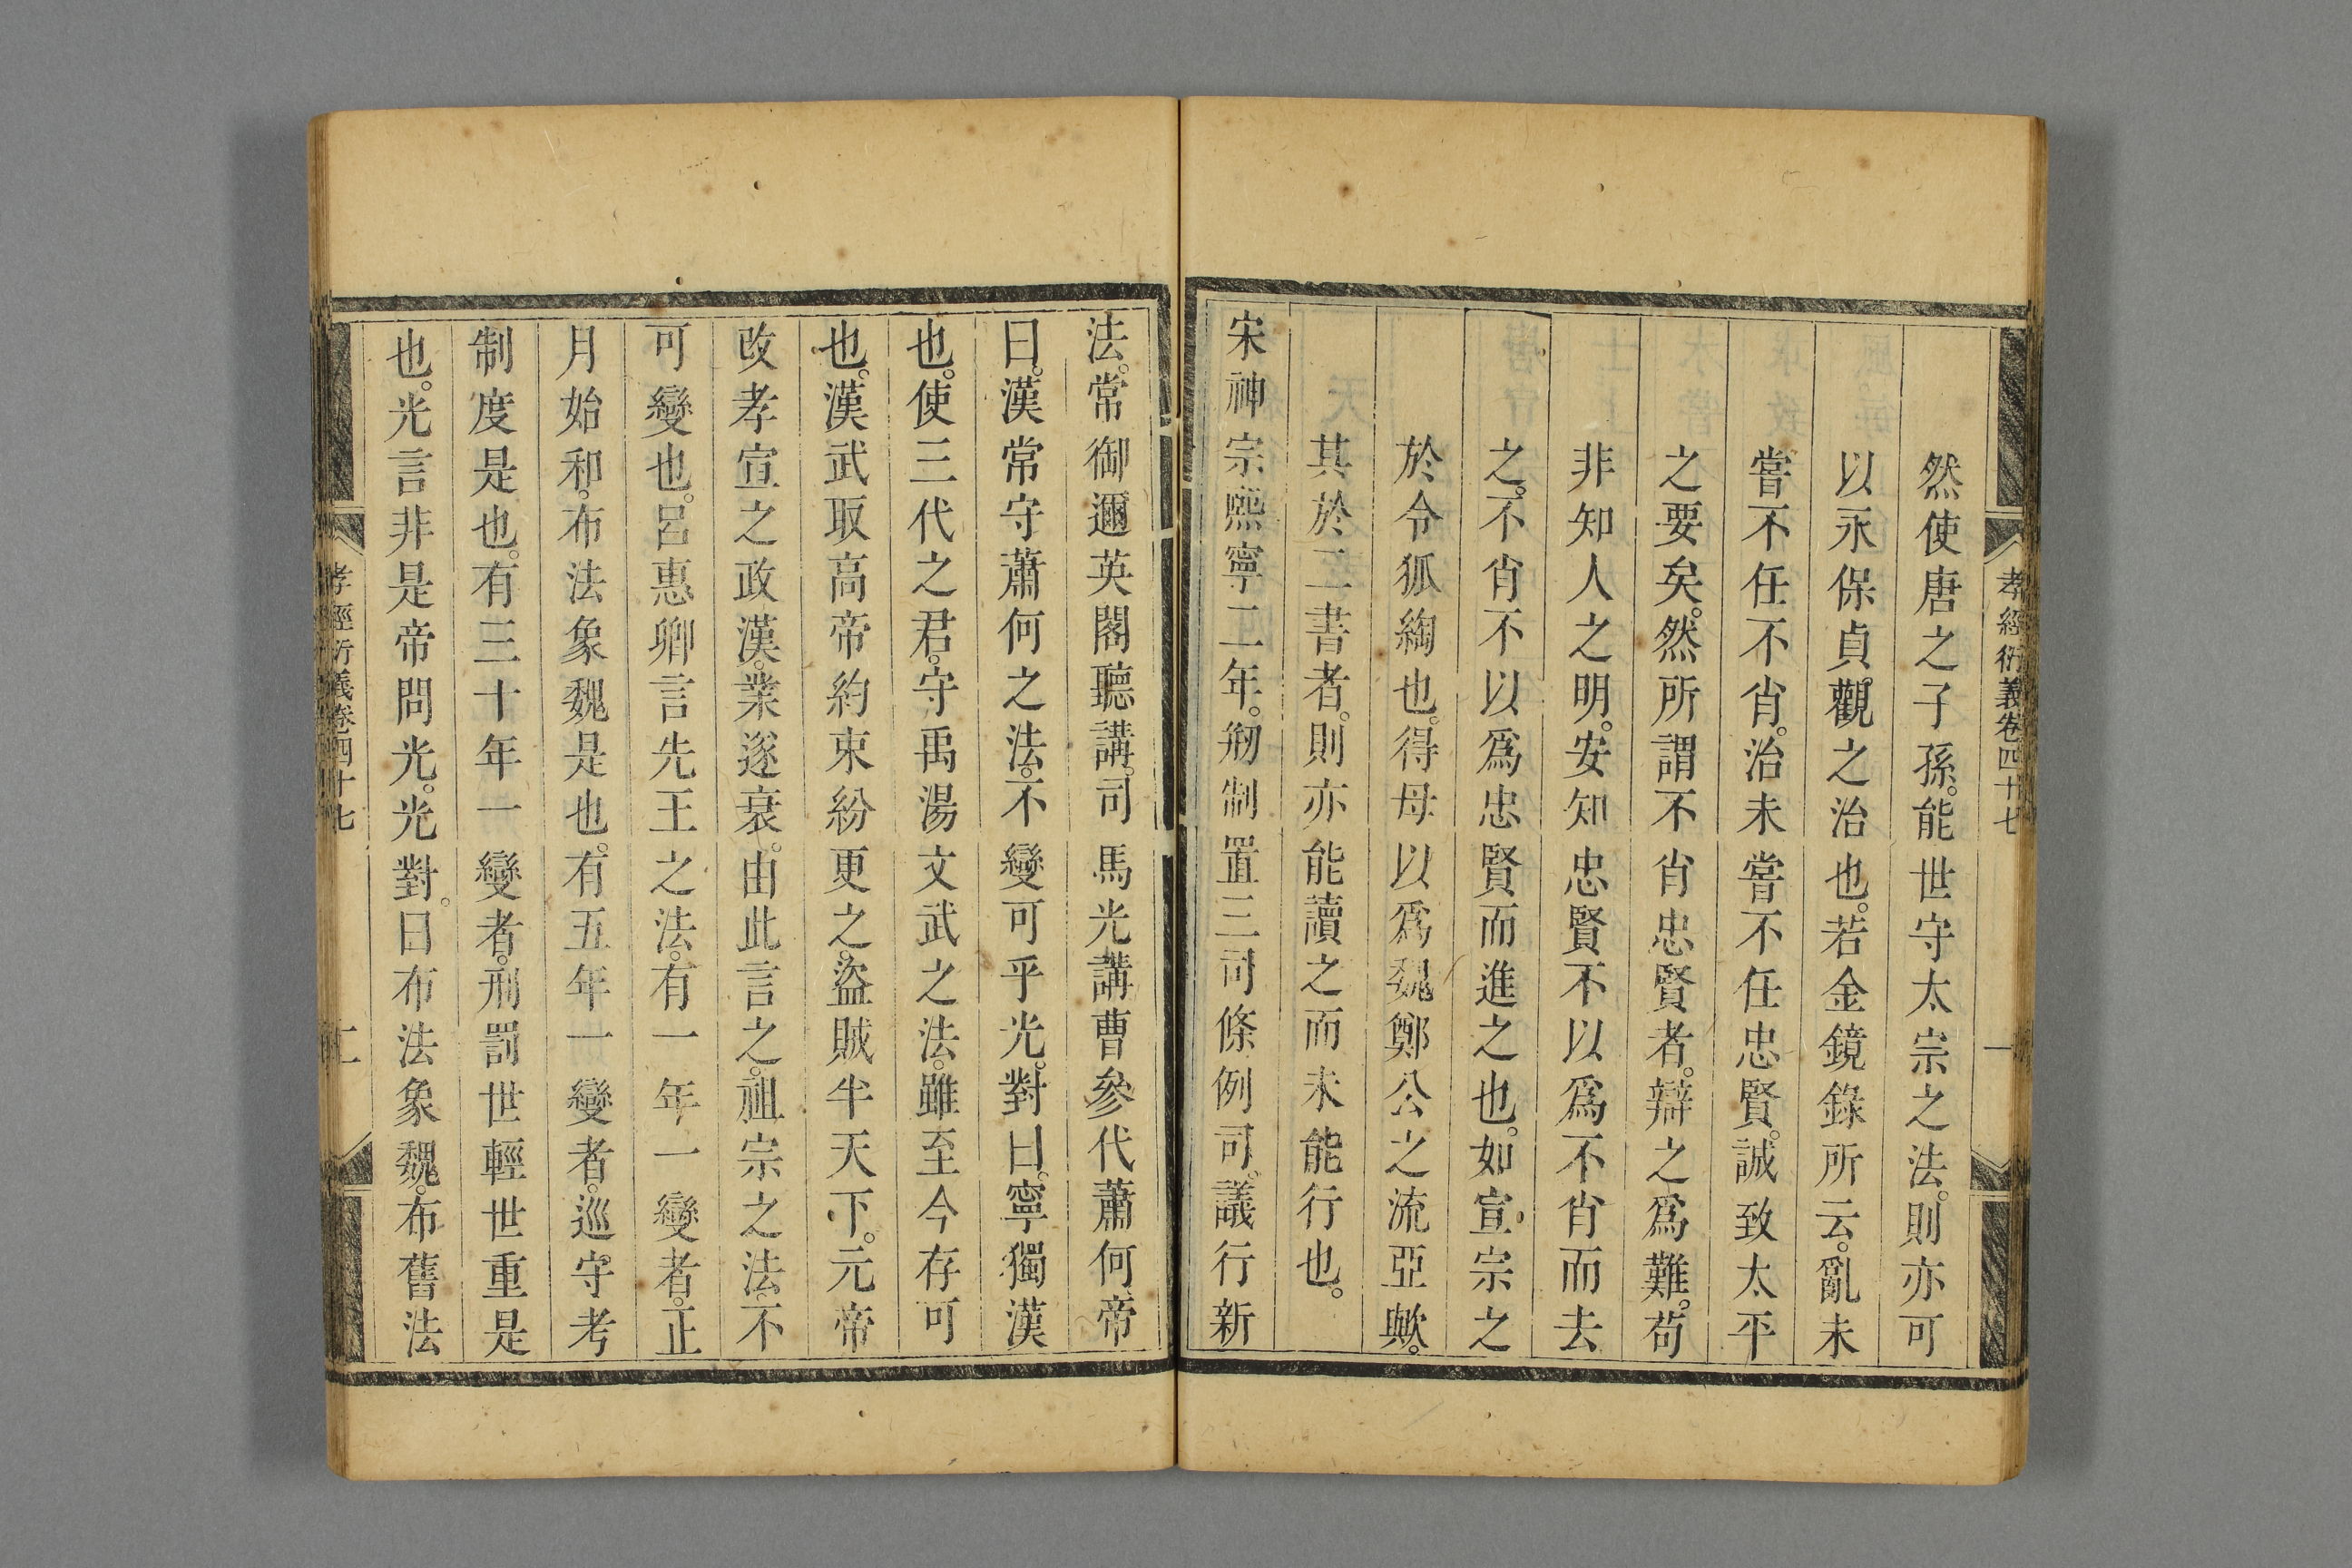 孝經衍義卷四十七
一
然使唐之子孫。能世守太宗之法。則亦可
以永保貞觀之治也。若金鏡錄所云。亂未
嘗不任不肖。治未嘗不任忠賢。誠致太平
之要矣。然所謂不肖忠賢者。辯之爲難。苟
非知人之明。安知忠賢不以爲不肖而去
之。不肖不以爲忠賢而進之也。如宣宗之
於令狐綯也。得毋以爲魏鄭公之流亞歟。
其於二書者。則亦能讀之而未能行也。
宋神宗熙寧二年。剏制置三司條例司。議行新
法。常御邇英閣聽講。司馬光講曹參代蕭何。帝
曰。漢常守蕭何之法。不變可乎。光對曰。寧獨漢
也。使三代之君。守禹湯文武之法。雖至今存可
也。漢武取高帝約束紛更之。盜賊半天下。元帝
改孝宣之政。漢業遂衰。由此言之。祖宗之法。不
可變也。呂惠卿言先王之法。有一年一變者。正
月始和。布法象魏是也。有五年一變者。巡守考
制度是也。有三十年一變者。刑罰世輕世重是
也。光言非是。帝問光。光對。曰布法象魏。布舊法
孝經衍義卷四十七
二